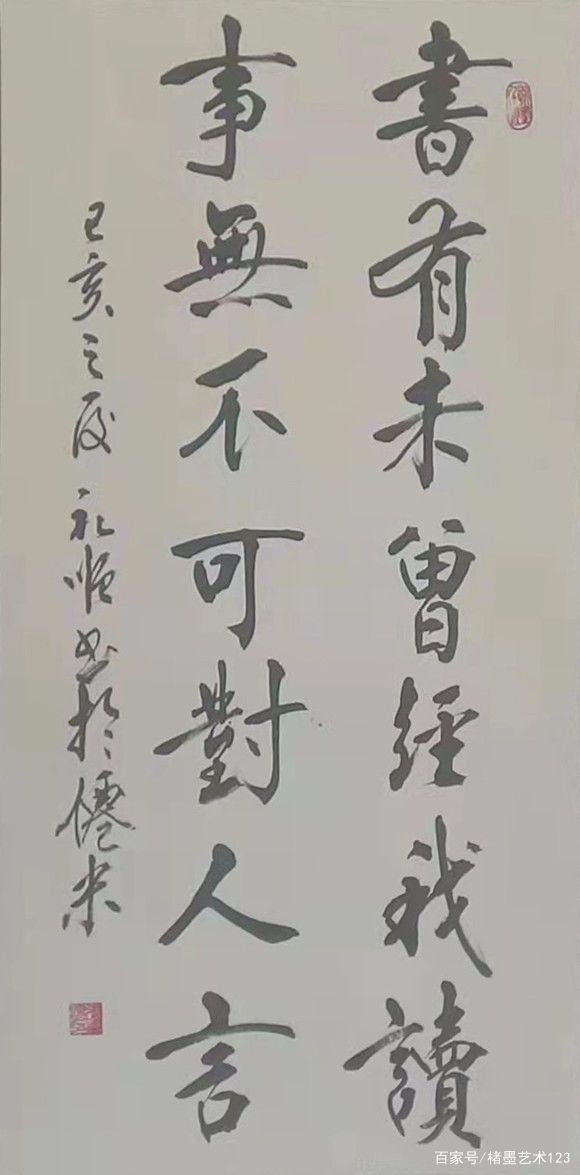 書有未曾經我讀
事無不可對人言
己亥之夏礼順书於僊米
百家号/楮墨艺术123